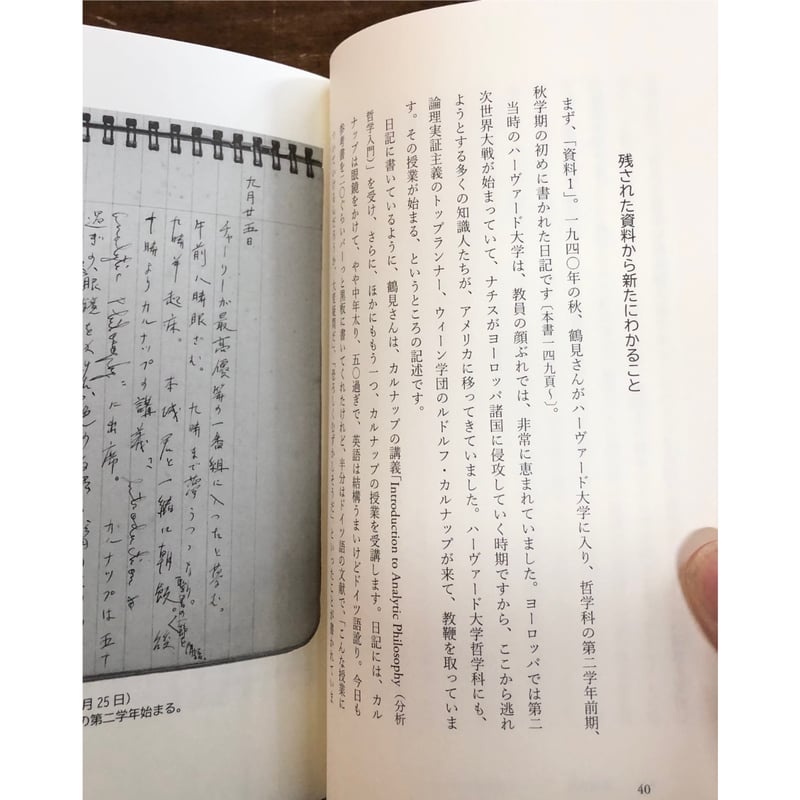 残された資料から新たにわかること
まず、「資料1」。一九四〇年の秋、鶴見さんがハーヴァード大学に入り、哲学科の第二学年前期、
秋学期の初めに書かれた日記です〔本書一四九頁〜〕。
当時のハーヴァード大学は、教員の顔ぶれでは、非常に恵まれていました。ヨーロッパでは第二
次世界大戦が始まっていて、ナチスがヨーロッパ諸国に侵攻していく時期ですから、ここから逃れ
ようとする多くの知識人たちが、アメリカに移ってきていました。ハーヴァード大学哲学科にも、
論理実証主義のトップランナー、ウィーン学団のルドルフ・カルナップが来て、教鞭を取っていま
す。その授業が始まる、というところの記述です。
日記に書いているように、鶴見さんは、カルナップの講義「Introduction to Analytic Philosophy（分析
哲学入門）」を受け、さらに、ほかにももう一つ、カルナップの授業を受講します。日記には、カル
ナップは眼鏡をかけて、やや中年太り、五〇過ぎで、英語は結構うまいけどドイツ語訛り。今日も
参考書を二〇ぐらいバーっと黒板に書いてくれたけれど、半分はドイツ語の文献で、「こんな授業に
40
九月廿五日
チャーリーが最高優等の一番組に入ったと夢む。
午前八時眼さむ。九時まで夢うつつ
九時半起床。本城君と一緒に朝飯。後
十時よりカルナップの講義
に出席。カルナップは五十
過ぎの、眼鏡を
月25日）
の第二学年始まる。